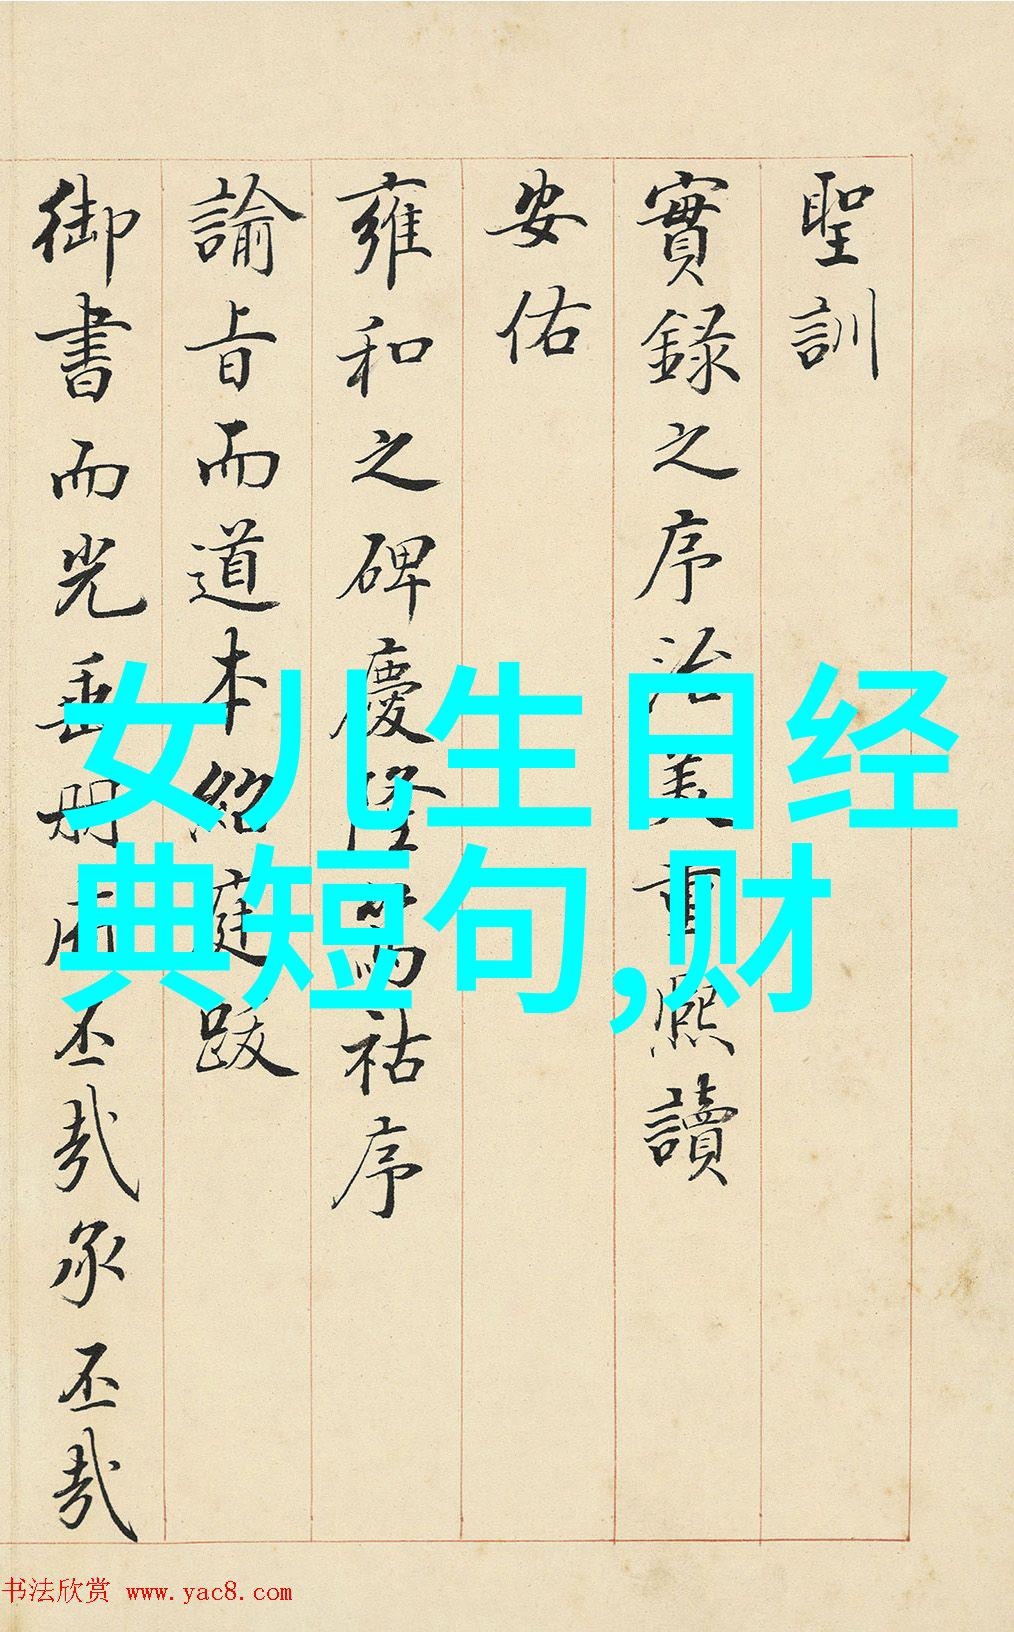 聖訓
實錄之序治美重熙讀
安佑
雍和之碑慶隆篤祜序
諭旨而道本紹庭跋
御書而光垂册府丕哉承丕哉
女儿生日经
典短句,财
书法欣赏 www.yac8.com